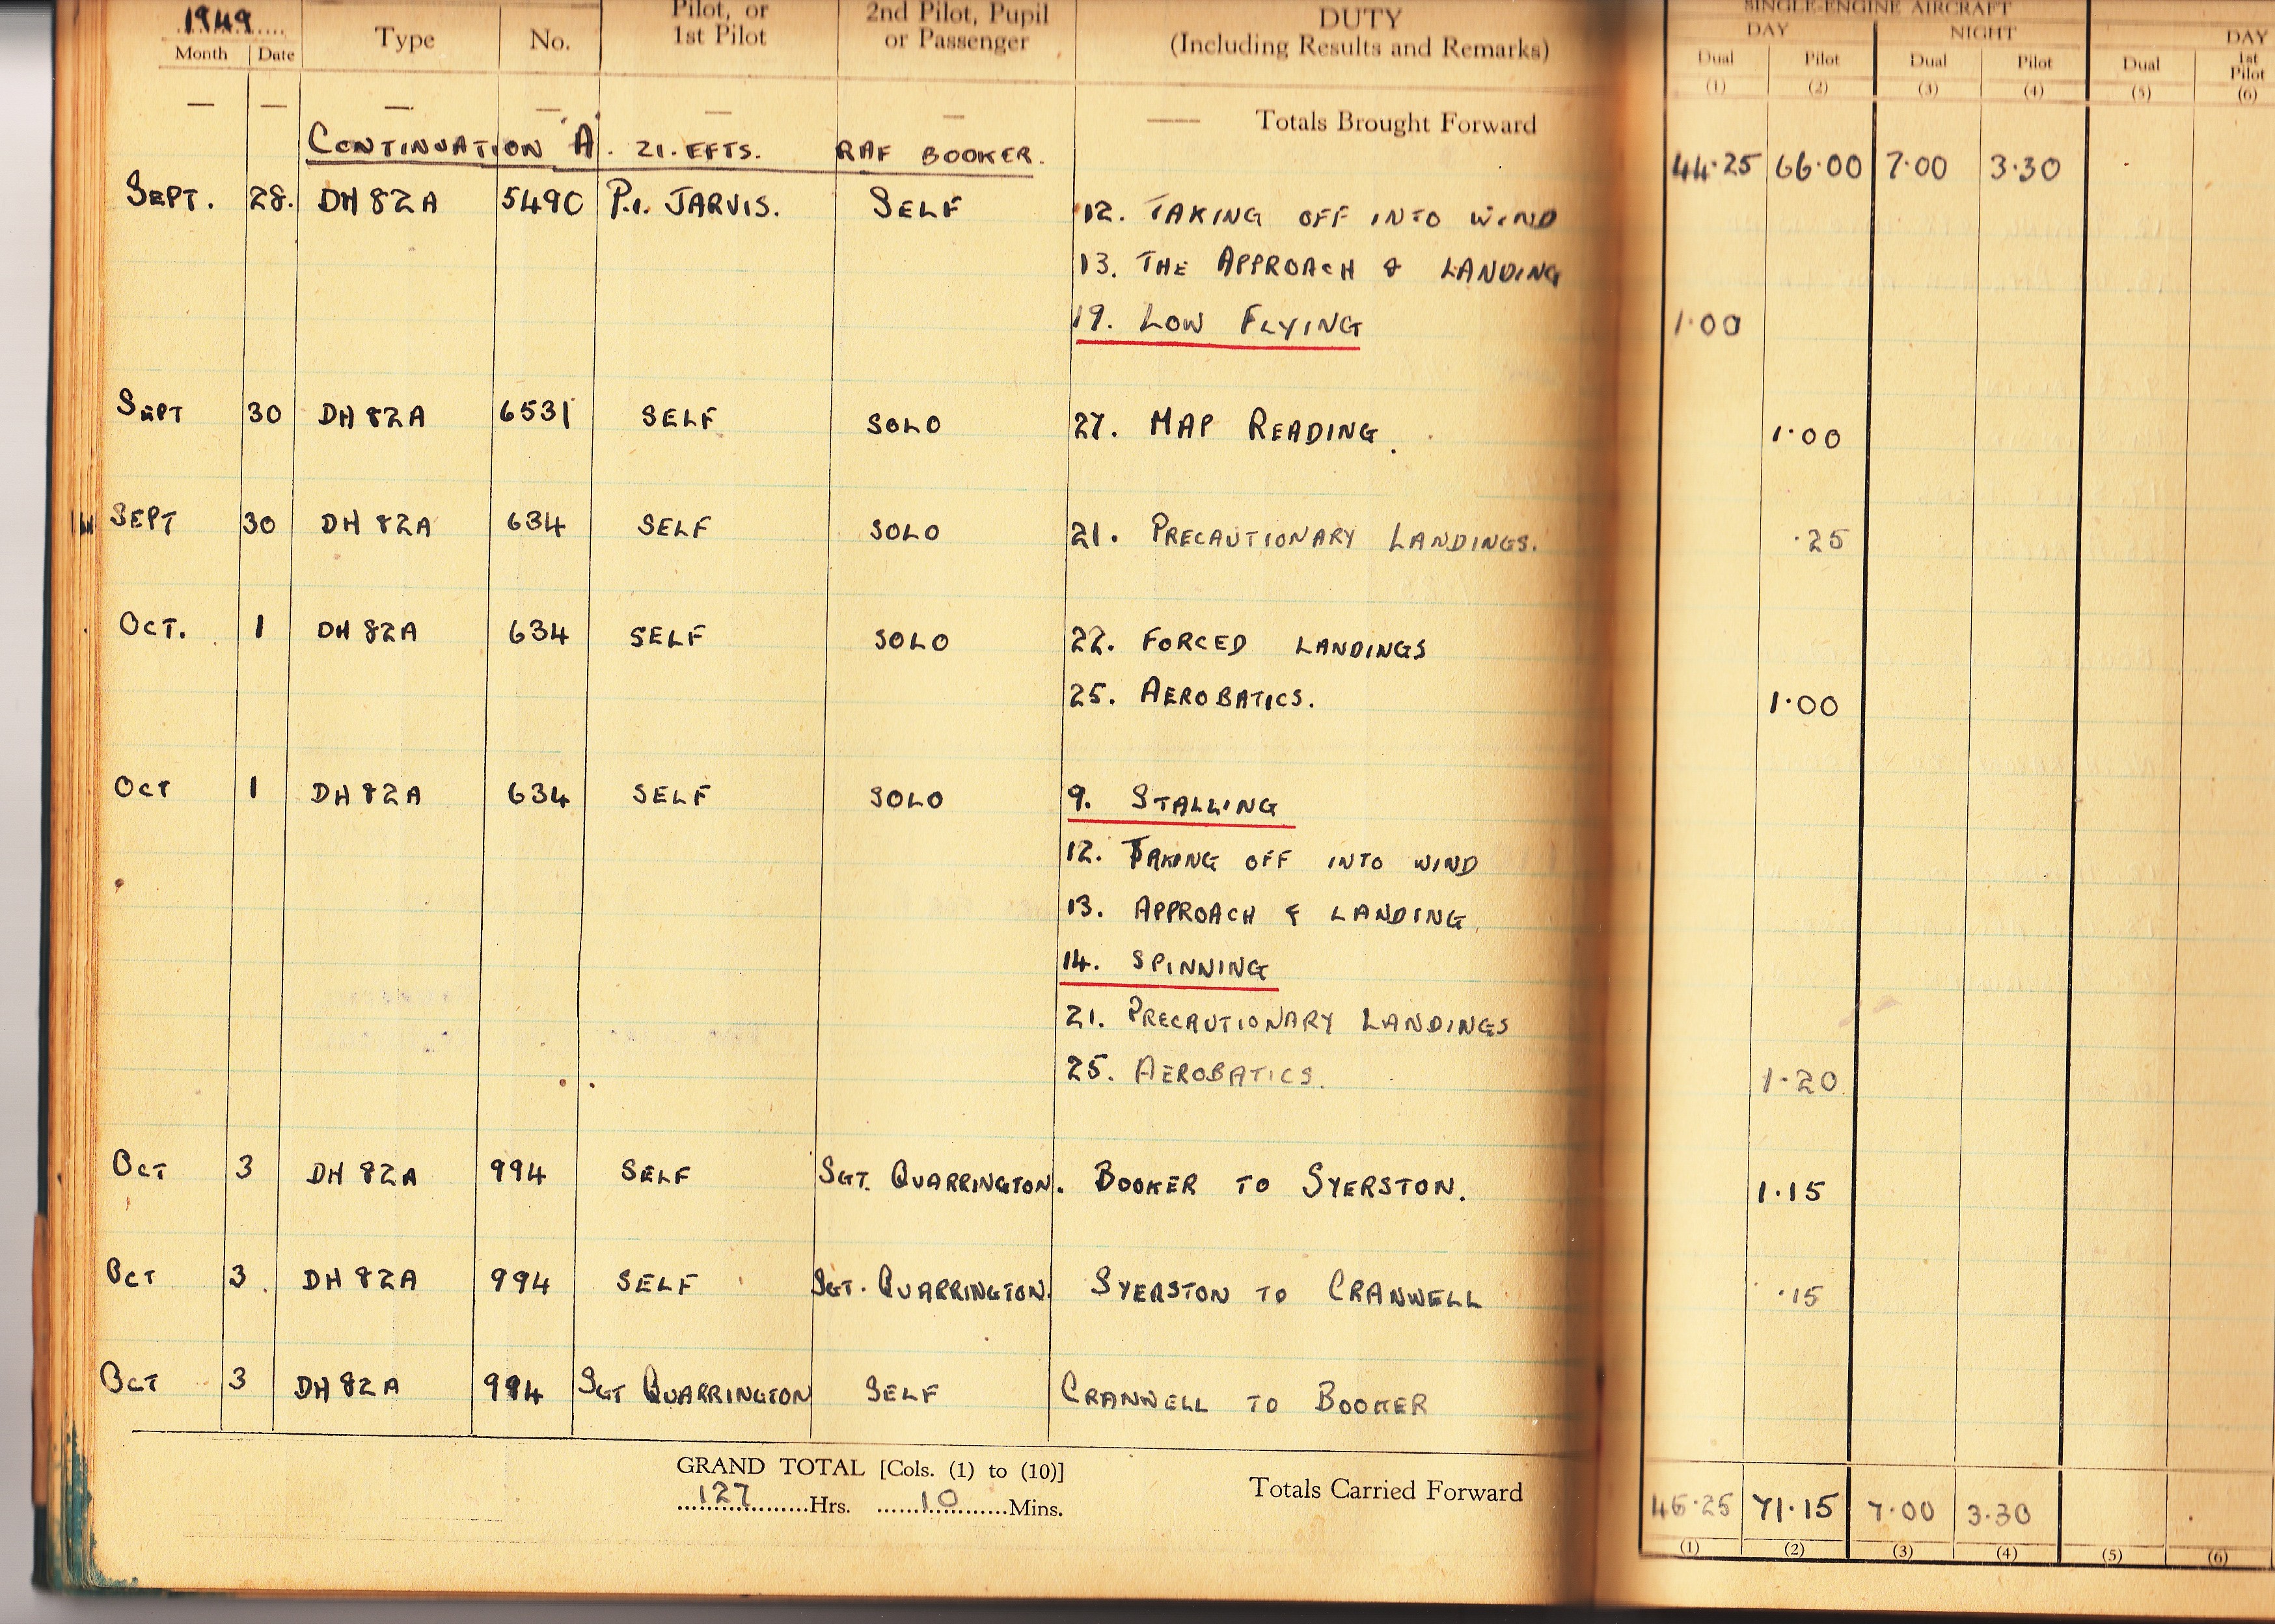 1949
SINGLE-ENGINE AIRCRAFT
Month Date Type No. Pilot, or 1st Pilot 2nd Pilot, Pupil or Passenger DUTY (Including Results and Remarks) DAY NIGHT DAY
Dual Pilot Dual Pilot Dual 1st Pilot
(1) (2) (3) (4) (5) (6)
— — — — — — —— Totals Brought Forward
CONTINUATION 'A'. 21. EFTS. RAF BOOKER. 44·25 66·00 7·00 3·30
SEPT. 28. DH 82A 5490 P.1. JARVIS. SELF 12. TAKING OFF INTO WIND
13. THE APPROACH & LANDING
19. LOW FLYING 1·00
SEPT 30 DH 82A 6531 SELF SOLO 27. MAP READING. 1·00
SEPT 30 DH 82A 634 SELF SOLO 21. PRECAUTIONARY LANDINGS. ·25
OCT. 1 DH 82A 634 SELF SOLO 22. FORCED LANDINGS
25. AEROBATICS. 1·00
OCT 1 DH 82A 634 SELF SOLO 9. STALLING
12. TAKING OFF INTO WIND
13. APPROACH & LANDING
14. SPINNING
21. PRECAUTIONARY LANDINGS
25. AEROBATICS. 1·20
OCT 3 DH 82A 994 SELF SGT. QUARRINGTON. BOOKER TO SYERSTON. 1·15
OCT 3. DH 82A 994 SELF SGT. QUARRINGTON. SYERSTON TO CRANWELL ·15
OCT 3 DH 82A 994 SGT QUARRINGTON SELF CRANWELL TO BOOKER
GRAND TOTAL [Cols. (1) to (10)]
127 Hrs. 10 Mins. Totals Carried Forward 45·25 71·15 7·00 3·30
(1) (2) (3) (4) (5) (6)